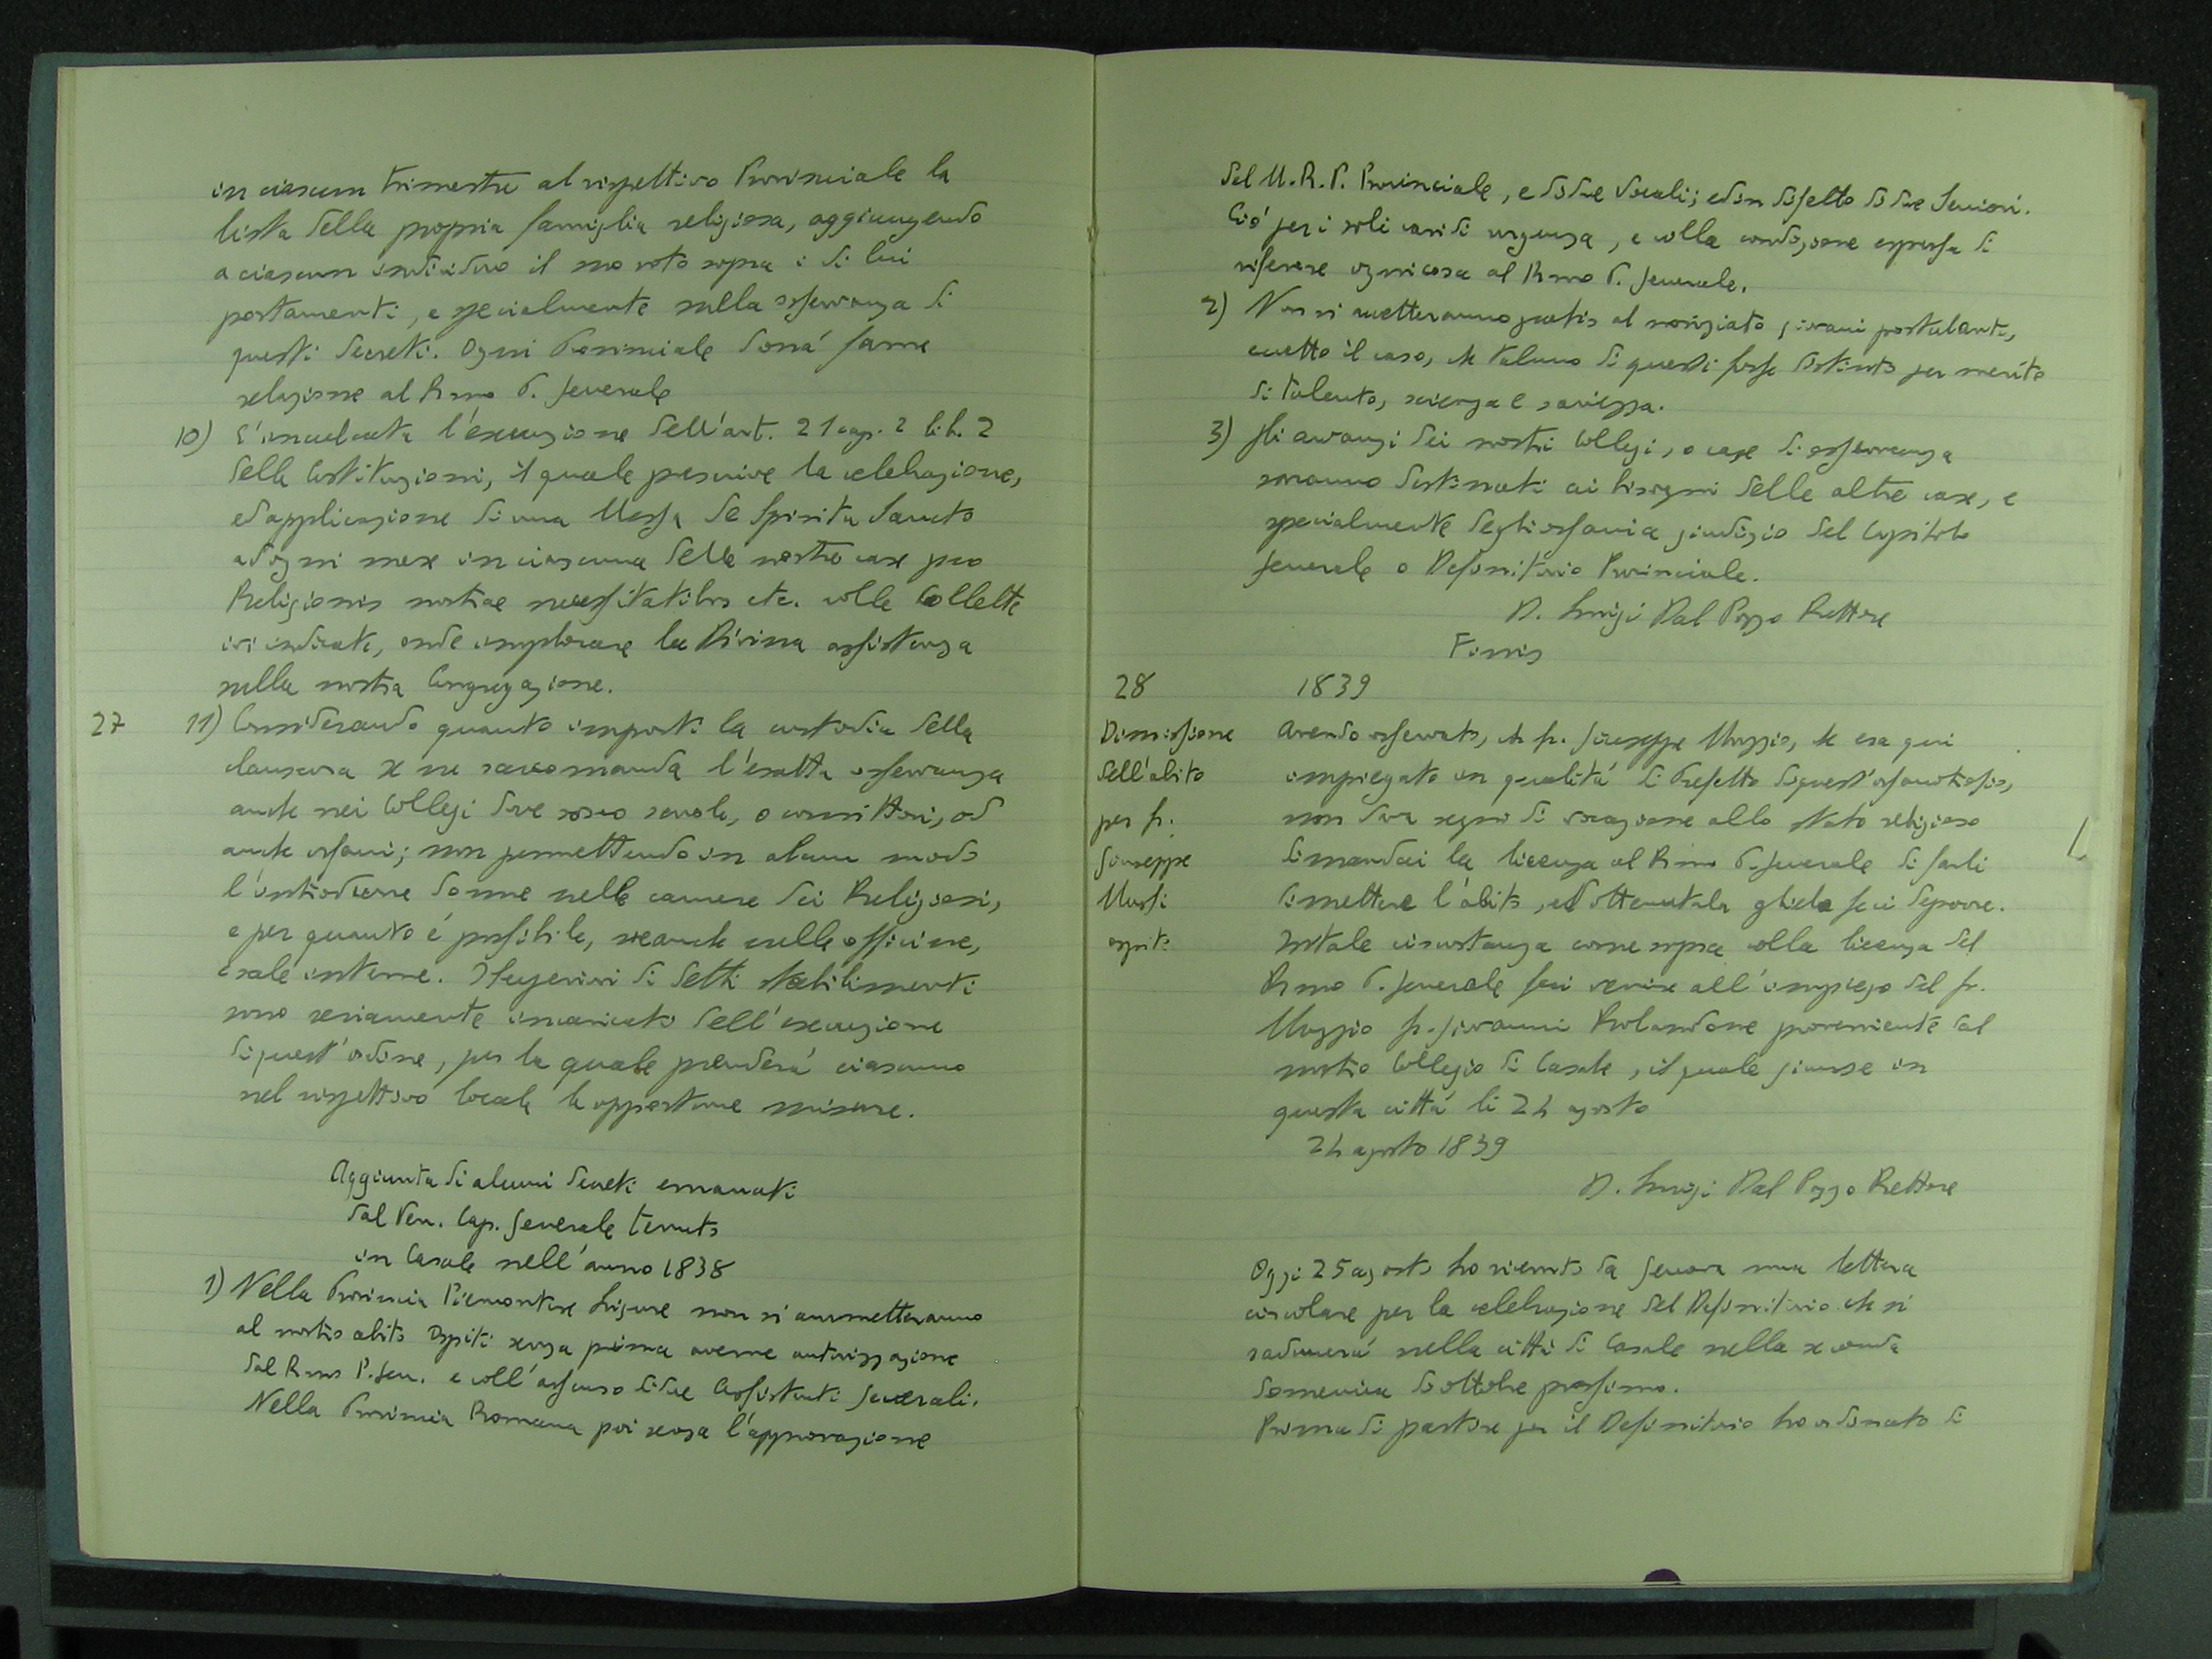 in ciascun trimestre al rispettivo Provinciale la
lista della propria famiglia religiosa, aggiungendo
a ciascun individuo il suo voto sopra i di lui
portamenti, e specialmente sulla osservanza di
questi Decreti. Ogni Provinciale dovrá farne
relazione al Rmo P. Generale
10) E' inculcata l'esecuzione dell'art. 21 cap. 2 lib. 2
delle Costituzioni, il quale prescrive la celebrazione,
ed applicazione di una Messa de Spiritu Sancto
ad ogni mese in ciascuna delle nostre case pro
Religionis nostrae necessitatibus etc. colle Collette
ivi indicate, onde implorare la Divina assistenza
sulla nostra Congregazione.
27 11) Considerando quanto importi la custodia della
clausura se ne raccomanda l'esatta osservanza
anche nei Collegi dove sono scuole, o convittori, od
anche orfani; non permettendo in alcun modo
l'introdurre donne nelle camere dei Religiosi,
e per quanto é possibile, neanche nelle officine,
e sale interne. I Superiori di detti stabilimenti
sono seriamente incaricati dell'esecuzione
di quest'ordine, per la quale prenderá ciascuno
nel rispettivo locale le opportune misure.
Aggiunta di alcuni Decreti emanati
dal Ven. Cap. Generale tenuto
in Casale nell'anno 1838
1) Nella Provincia Piemontese Ligure non si ammetteranno
al nostro abito Ospiti senza prima averne autorizzazione
dal Rmo P. Gen. e coll'assenso di due Assistenti Generali.
Nella Provincia Romana poi senza l'approvazione
del M.R.P. Provinciale, e di due Vocali; ed in difetto di due Seniori.
Ció per i soli casi di urgenza, e colla condizione espressa di
riferire ogni cosa al Rmo P. Generale.
2) Non si accetteranno gratis al noviziato giovani postulanti,
eccetto il caso, che taluno di questi fosse distinto per merito
di talento, scienza e saviezza.
3) Gli avanzi dei nostri Collegi, o case di osservanza
saranno destinati ai bisogni delle altre case, e
specialmente degli orfani a giudizio del Capitolo
Generale o Definitorio Provinciale.
D. Luigi Dal Pozzo Rettore
Finis
28 1839
Dimissione
dell'abito
per fr.
Giuseppe
Mussi
ospite
Avendo osservato, che fr. Giuseppe Muzzio, che era qui
impiegato in qualitá di Prefetto di quest'orfanotrofio,
non dava segni di vocazione allo stato religioso
dimandai la licenza al Rmo P. Generale di farli
dimettere l'abito, ed ottenutala glielo feci deporre.
In tale circostanza come sopra colla licenza del
Rmo P. Generale feci venire all'impiego del fr.
Muzzio fr. Giovanni Rolandone proveniente dal
nostro Collegio di Casale, il quale giunse in
questa cittá li 24 agosto
24 agosto 1839
D. Luigi Dal Pozzo Rettore
Oggi 25 agosto ho ricevuto da Genova una lettera
circolare per la celebrazione del Definitorio che si
radunerá nella cittá di Casale nella seconda
Domenica di ottobre prossimo.
Prima di partire per il Definitorio ho ordinato di